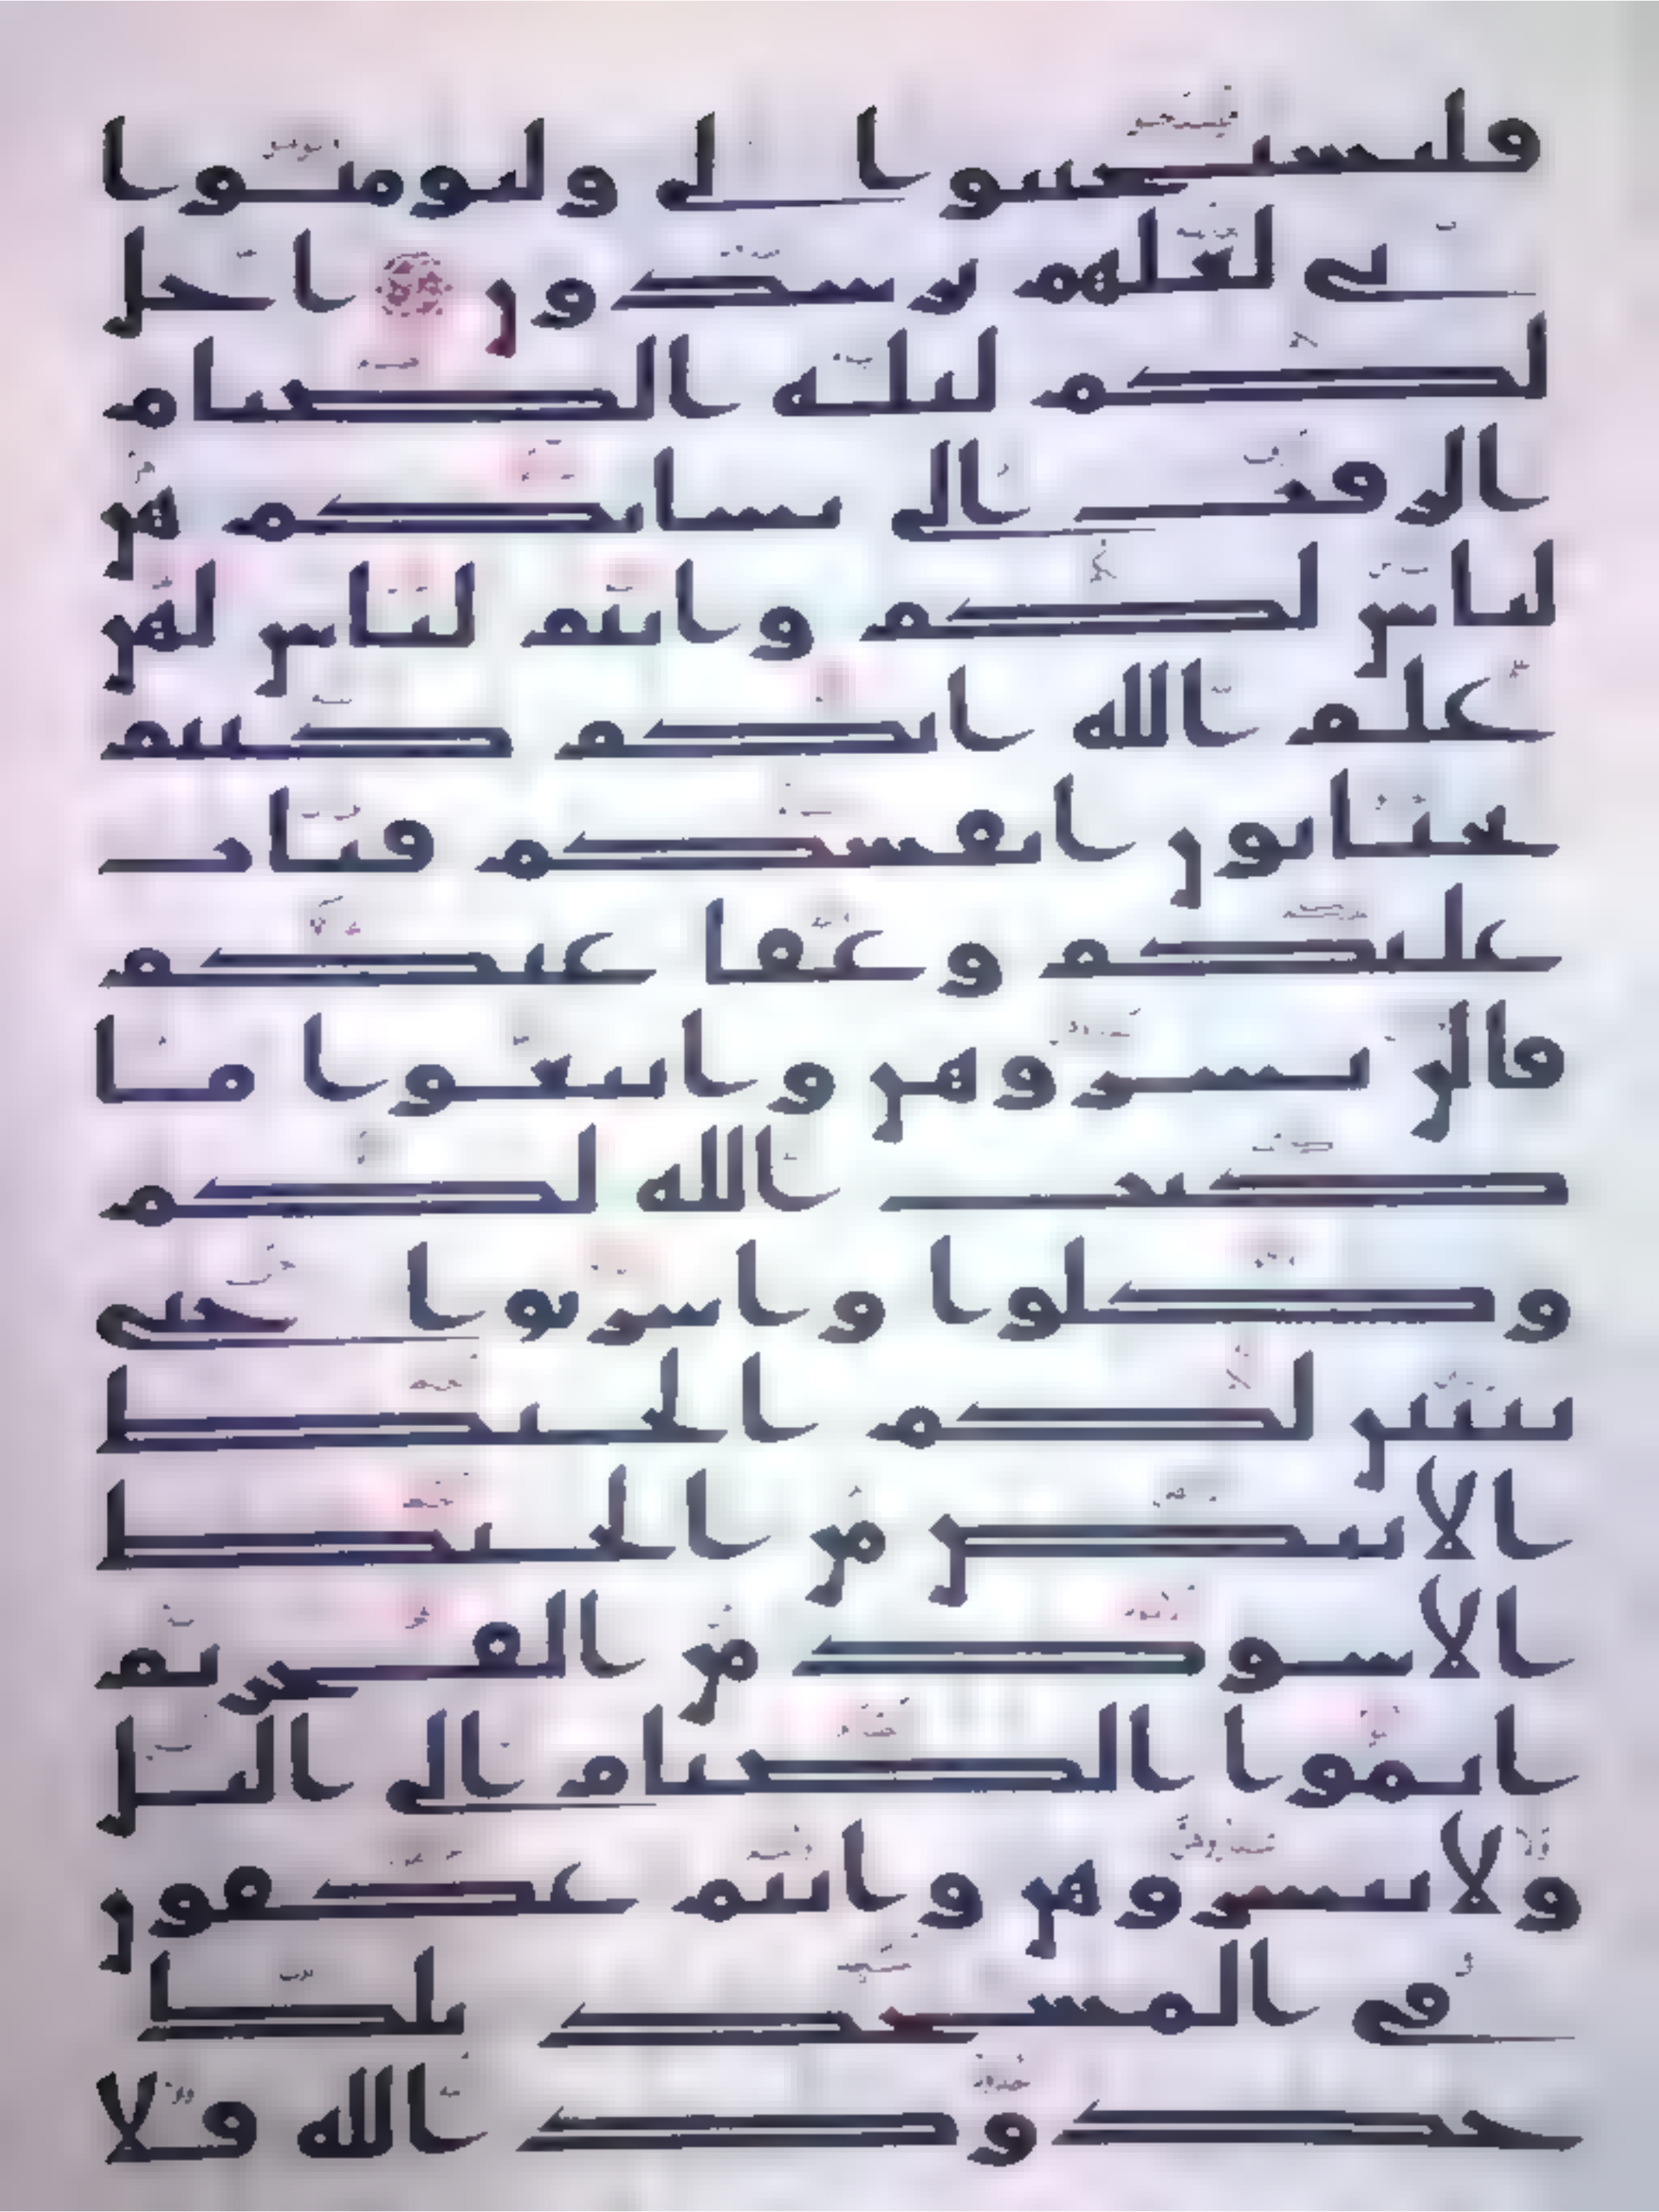 فليستجيبوا لي وليومنوا
بي لعلهم يرشدون ۝ احل
لكم ليلة الصيام
الرفث الى نسائكم هن
لباس لكم وانتم لباس لهن
علم الله انكم كنتم
تختانون انفسكم فتاب
عليكم وعفا عنكم
فالن بشروهن وابتغوا ما
كتب الله لكم
وكلوا واشربوا حتى
يتبين لكم الخيط
الابيض من الخيط
الاسود من الفجر ثم
اتموا الصيام الى اليل
ولا تبشروهن وانتم عكفون
في المسجد تلك
حدود الله فلا